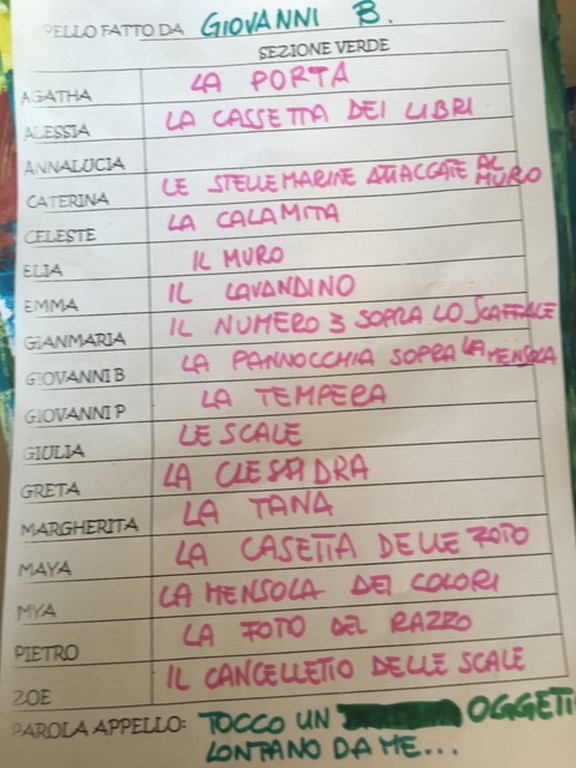 PELLO FATTO DA GIOVANNI B.
SEZIONE VERDE
AGATHA LA PORTA
ALESSIA LA CASSETTA DEI LIBRI
ANNALUCIA
CATERINA LE STELLE MARINE ATTACCATE AL MURO
CELESTE LA CALAMITA
ELIA IL MURO
EMMA IL LAVANDINO
GIANMARIA IL NUMERO 3 SOPRA LO SCAFFALE
GIOVANNI B LA PANNOCCHIA SOPRA LA MENSOLA
GIOVANNI P LA TEMPERA
GIULIA LE SCALE
GRETA LA CLESSIDRA
MARGHERITA LA TANA
MAYA LA CASETTA DELLE FOTO
MYA LA MENSOLA DEI COLORI
PIETRO LA FOTO DEL RAZZO
ZOE IL CANCELLETTO DELLE SCALE
PAROLA APPELLO: TOCCO UN OGGETT
LONTANO DA ME...